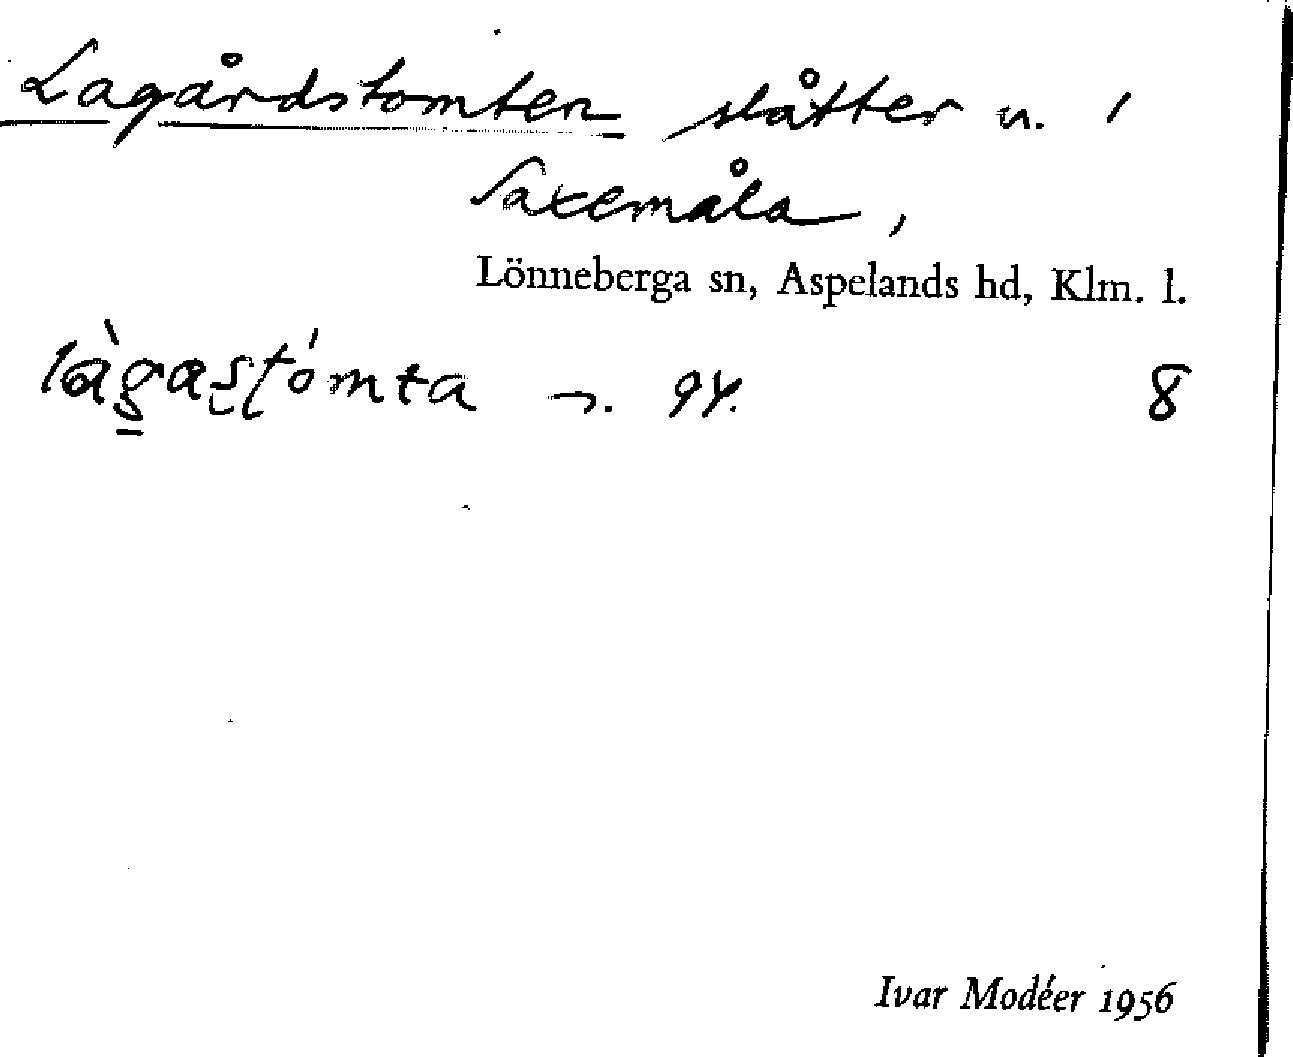 Lagårdstomten slåtter u. i
Saxemåla,
Lönneberga sn, Aspelands hd, Klm. l.
làgastómta 94. 8
Ivar Modéer 1956